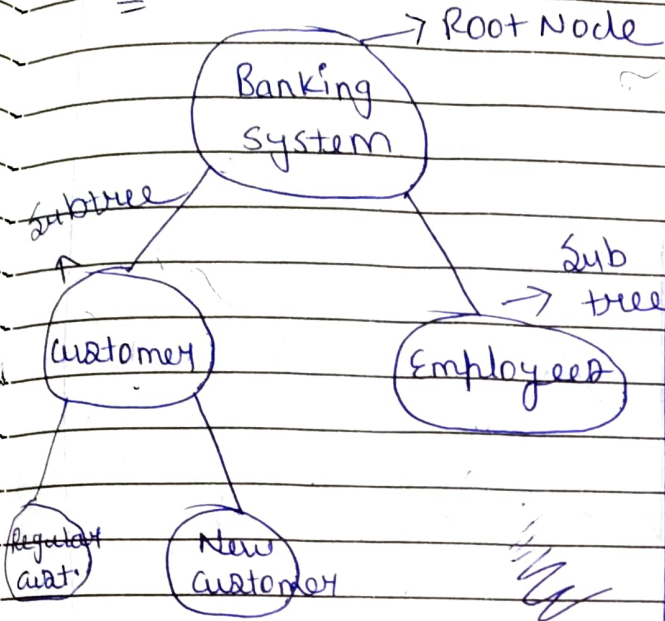 Root Node
Banking
System
Subtree
Sub
tree
Customer
Employees
Regular
cust.
New
Customer